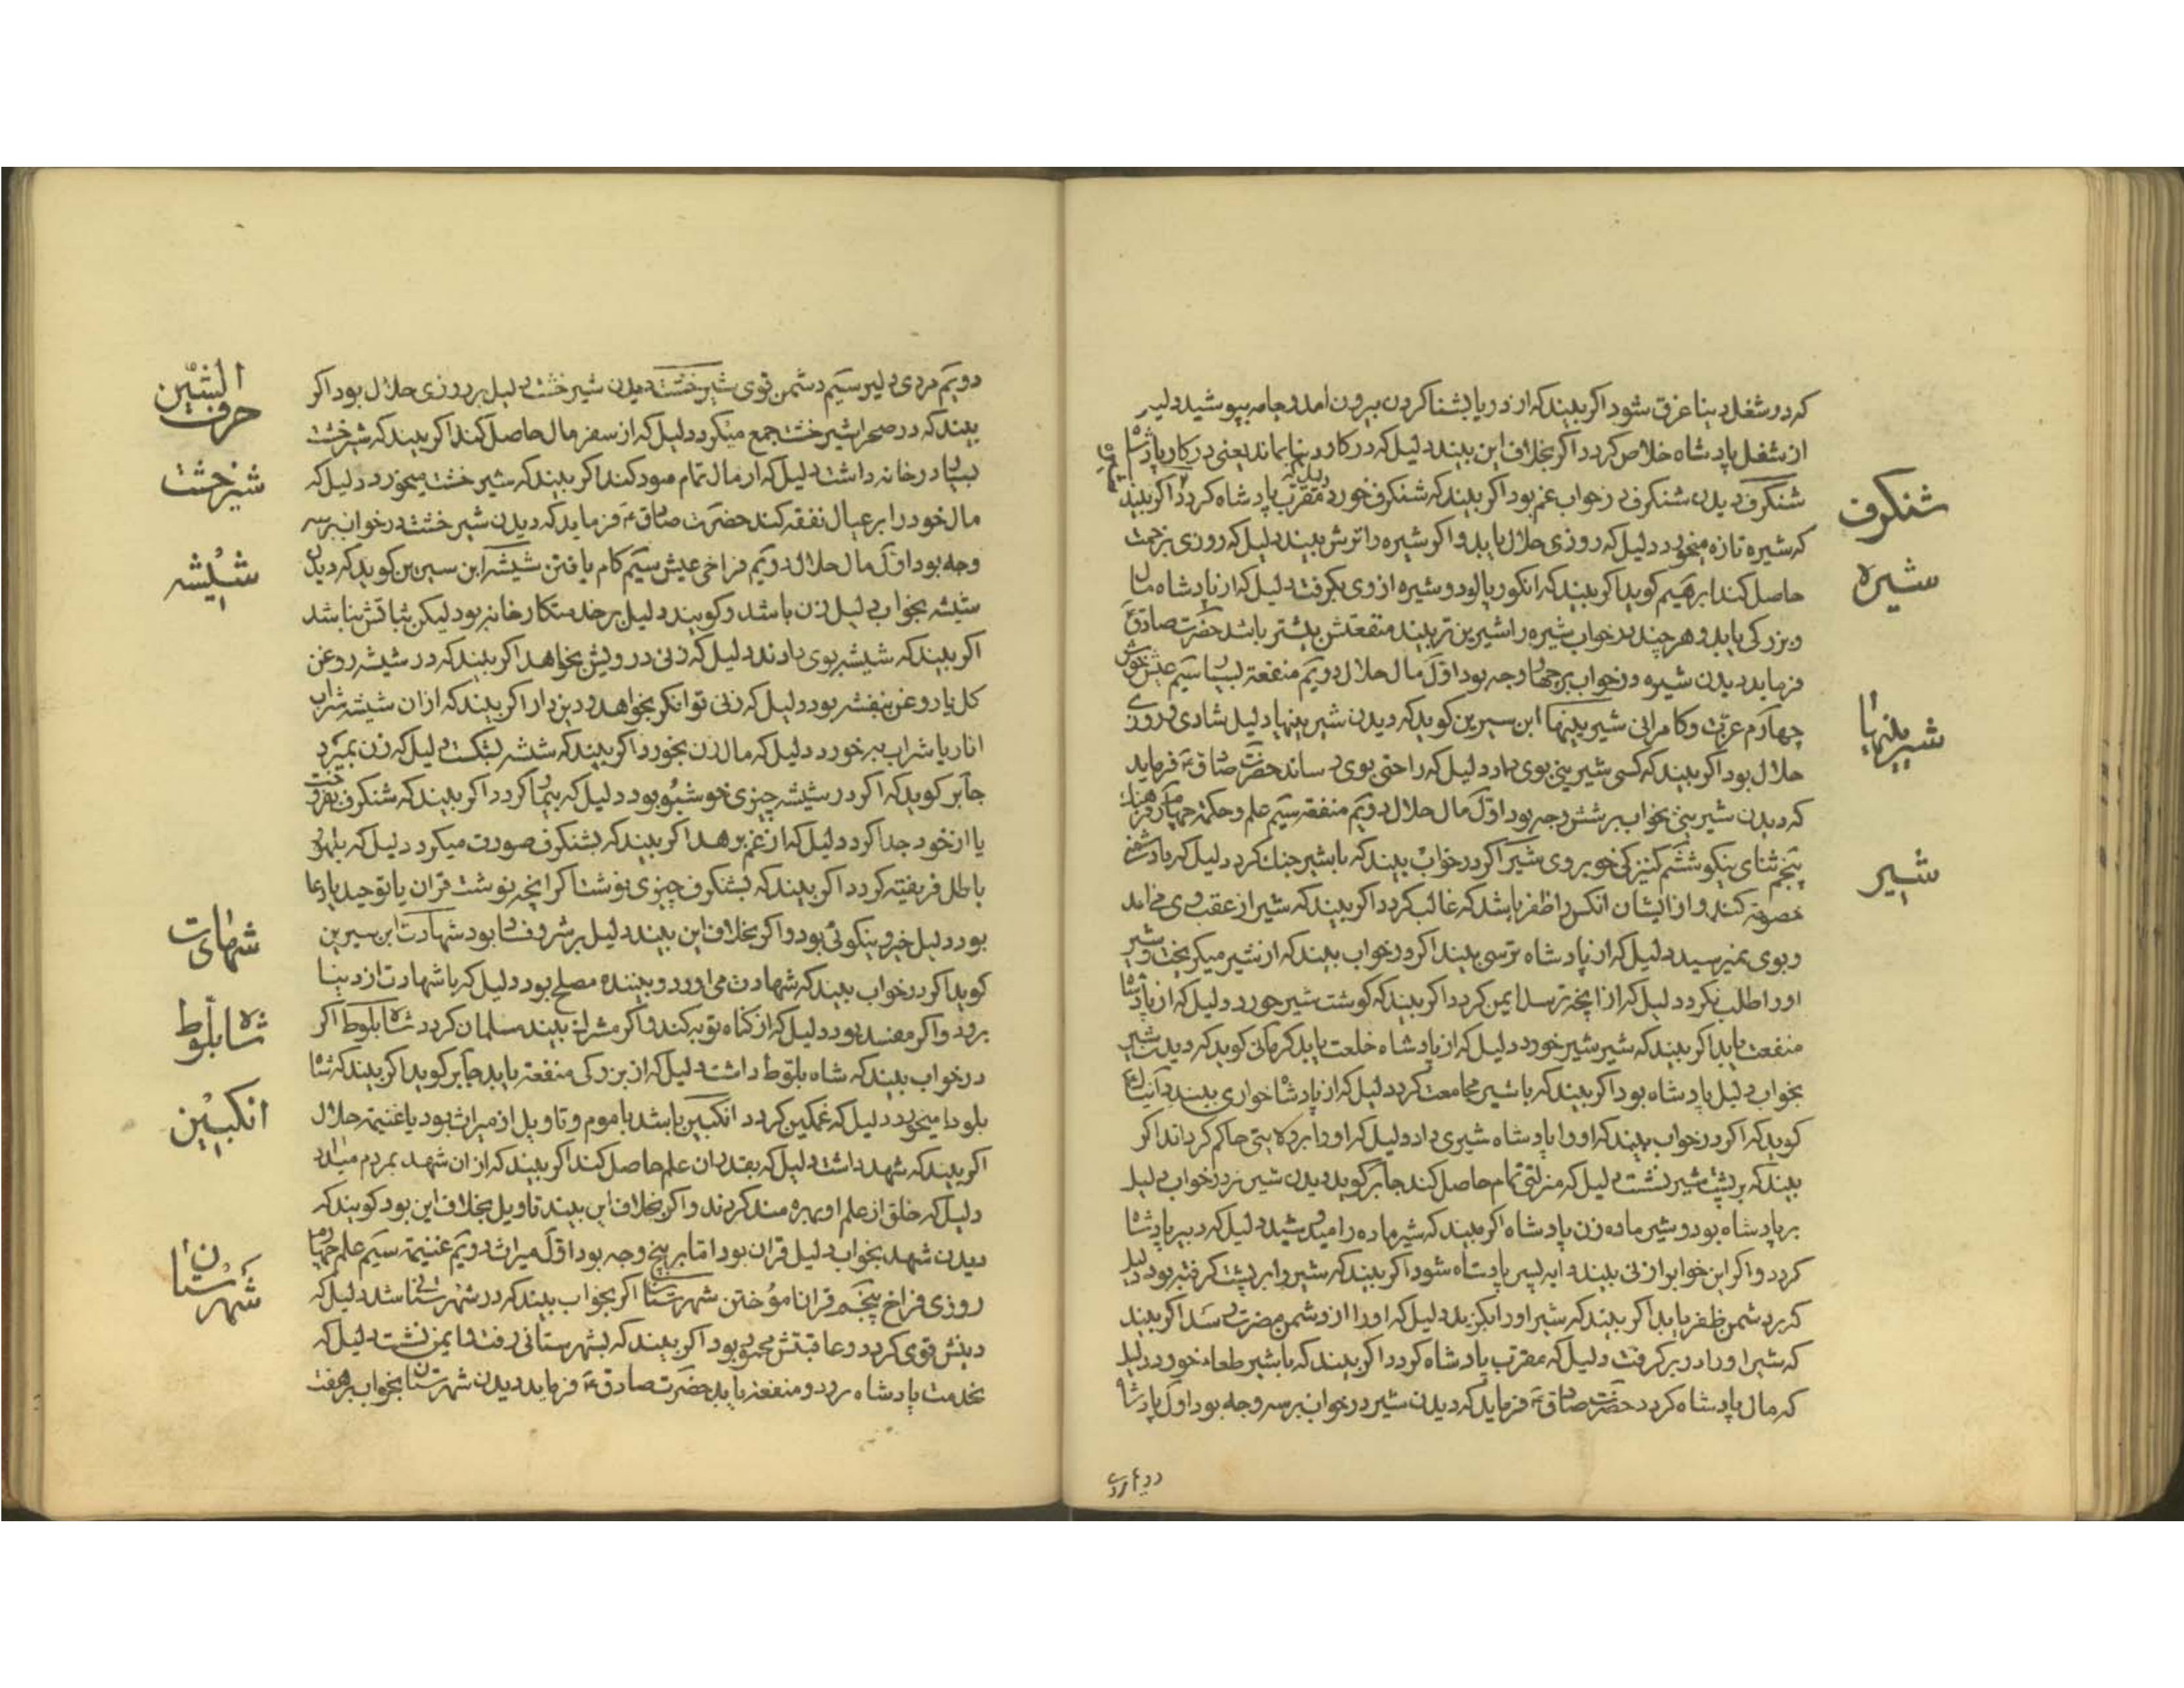 که در شغل دینا غرق شود اکر بیند که از دریا بشنا کردن بیرون امد و جامه بپوشید دلیل
از شغل پادشاه خلاص کردد اکر بخلاف این بیند دلیل که در کار دینا بماند یعنی در کار پادشاه
شنکرف
شنکرف دیدن شنکرف در خواب غم بود اکر بیند که شنکرف خورد دلیل که مقرب پادشاه کردد اکر بیند
که شیره تازه میخورد دلیل که روزی حلال یابد و اکر شیره را ترش بیند دلیل که روزی بزحمت
شیره
حاصل کند ابرهیم کوید اکر بیند که انکور پالود و شیره از وی بکرفت دلیل که از پادشاه مال
و بزرکی یابد و هر چند در خواب شیره را شیرین تر بیند منفعتش بیشتر باشد حضرت صادق ع
فرماید دیدن شیره در خواب بر چهار وجه بود اول مال حلال دویم منفعة بسیار سیم عیش خوش
شیرینها
چهارم عزت و کامرانی شیرینیها ابن سیرین کوید که دیدن شیرینیها دلیل شادی و روزی
حلال بود اکر بیند که کسی شیرینی بوی داد دلیل که راحتی بوی رساند حضرت صادق ع فرماید
که دیدن شیرینی بخواب بر شش وجه بود اول مال حلال دویم منفعة سیم علم و حکمة چهارم فرهنک
شیر
پنجم ثنای نیکو ششم کنیزکی خوبروی شیر اکر در خواب بیند که با شیر جنک کرد دلیل که با دشمنی
خصومة کند و از ایشان انکس را ظفر باشد که غالب کردد اکر بیند که شیر از عقب وی می امد
و بوی نمیرسید دلیل که از پادشاه ترسی بیند اکر در خواب بیند که از شیر میکریخت و شیر
او را طلب نکرد دلیل که از انچه ترسد ایمن کردد اکر بیند که کوشت شیر خورد دلیل که از پادشاه
منفعت یابد اکر بیند که شیر شیر خورد دلیل که از پادشاه خلعت یابد کرمانی کوید که دیدن شیر
بخواب دلیل پادشاه بود اکر بیند که با شیر مجامعت کرد دلیل که از پادشاه خواری بیند دانیال ع
کوید که اکر در خواب بیند که او را پادشاه شیری داد دلیل که او را بر ولایتی حاکم کرداند اکر
بیند که بر پشت شیر نشست دلیل که منزلتی تمام حاصل کند جابر کوید دیدن شیر نر در خواب دلیل
بر پادشاه بود و شیر ماده زن پادشاه اکر بیند که شیر ماده را میدوشید دلیل که دبیر پادشاه
کردد و اکر این خواب را زنی بیند دایه پسر پادشاه شود اکر بیند که شیر را بر پشت کرفته بود دلیل
که بر دشمن ظفر یابد اکر بیند که شیر او را بکزید دلیل که او را از دشمن مضرت رسد اکر بیند
که شیر او را در بر کرفت دلیل که مقرب پادشاه کردد اکر بیند که با شیر طعام خورد دلیل
که مال پادشاه کردد حضرت صادق ع فرماید که دیدن شیر در خواب بر سه وجه بود اول پادشاه
الشین
حرف
دویم مردی دلیر سیم دشمن قوی شیرخشت دیدن شیرخشت دلیل بر روزی حلال بود اکر
بیند که در صحرا شیرخشت جمع میکرد دلیل که از سفر مال حاصل کند اکر بیند که شیرخشت
شیرخشت
بسیار در خانه داشت دلیل که از مال تمام سود کند اکر بیند که شیرخشت میخورد دلیل که
مال خود را بر عیال نفقه کند حضرت صادق ع فرماید که دیدن شیرخشت در خواب بر سه
شیشه
وجه بود اول مال حلال دویم فراخی عیش سیم کام یافتن شیشه ابن سیرین کوید که دیدن
شیشه بخواب دلیل زن باشد و کویند دلیل بر خدمتکار خانه بود لیکن ثباتش نباشد
اکر بیند که شیشه بوی دادند دلیل که زنی درویش بخواهد اکر بیند که در شیشه روغن
کل یا روغن بنفشه بود دلیل که زنی توانکر بخواهد و دیندار اکر بیند که از ان شیشه شراب
انار یا شراب به خورد دلیل که مال زن بخورد اکر بیند که شیشه بشکست دلیل که زن بمیرد
جابر کوید که اکر در شیشه چیزی خوشبو بود دلیل که بیمار کردد اکر بیند که شنکرف بفروخت
یا از خود جدا کرد دلیل که از غم برهد اکر بیند که بشنکرف صورت میکرد دلیل که بلهو
باطل فریفته کردد اکر بیند که بشنکرف چیزی نوشت اکر انچه نوشت قران یا توحید یا دعا
شهادت
بود دلیل خیر و نیکوئی بود و اکر بخلاف این بیند دلیل بر شر و فساد بود شهادت ابن سیرین
کوید اکر در خواب بیند که شهادت می اورد و بیننده مصلح بود دلیل که با شهادت از دینا
شاه بلوط
برود و اکر مفسد بود دلیل که از کناه توبه کند و اکر مشرک بیند مسلمان کردد شاه بلوط اکر
در خواب بیند که شاه بلوط داشت دلیل که از بزرکی منفعة یابد جابر کوید اکر بیند که شاه
انکبین
بلوط میخورد دلیل که غمکین کردد انکبین باشد با موم و تاویل از میراث بود یا غنیمة حلال
اکر بیند که شهد داشت دلیل که بقدر ان علم حاصل کند اکر بیند که از ان شهد بمردم میداد
دلیل که خلق از علم او بهره مند کردند و اکر بخلاف این بیند تاویل بخلاف این بود کویند که
دیدن شهد بخواب دلیل قران بود اما بر پنج وجه بود اول میراث دویم غنیمة سیم علم چهارم
شهرستان
روزی فراخ پنجم قران اموختن شهرستان اکر بخواب بیند که در شهرستانی شد دلیل که
دینش قوی کردد و عاقبتش محمود بود اکر بیند که بشهرستانی رفت و ایمن نشست دلیل که
بخدمت پادشاه رود و منفعة یابد حضرت صادق ع فرماید دیدن شهرستان بخواب بر هفت